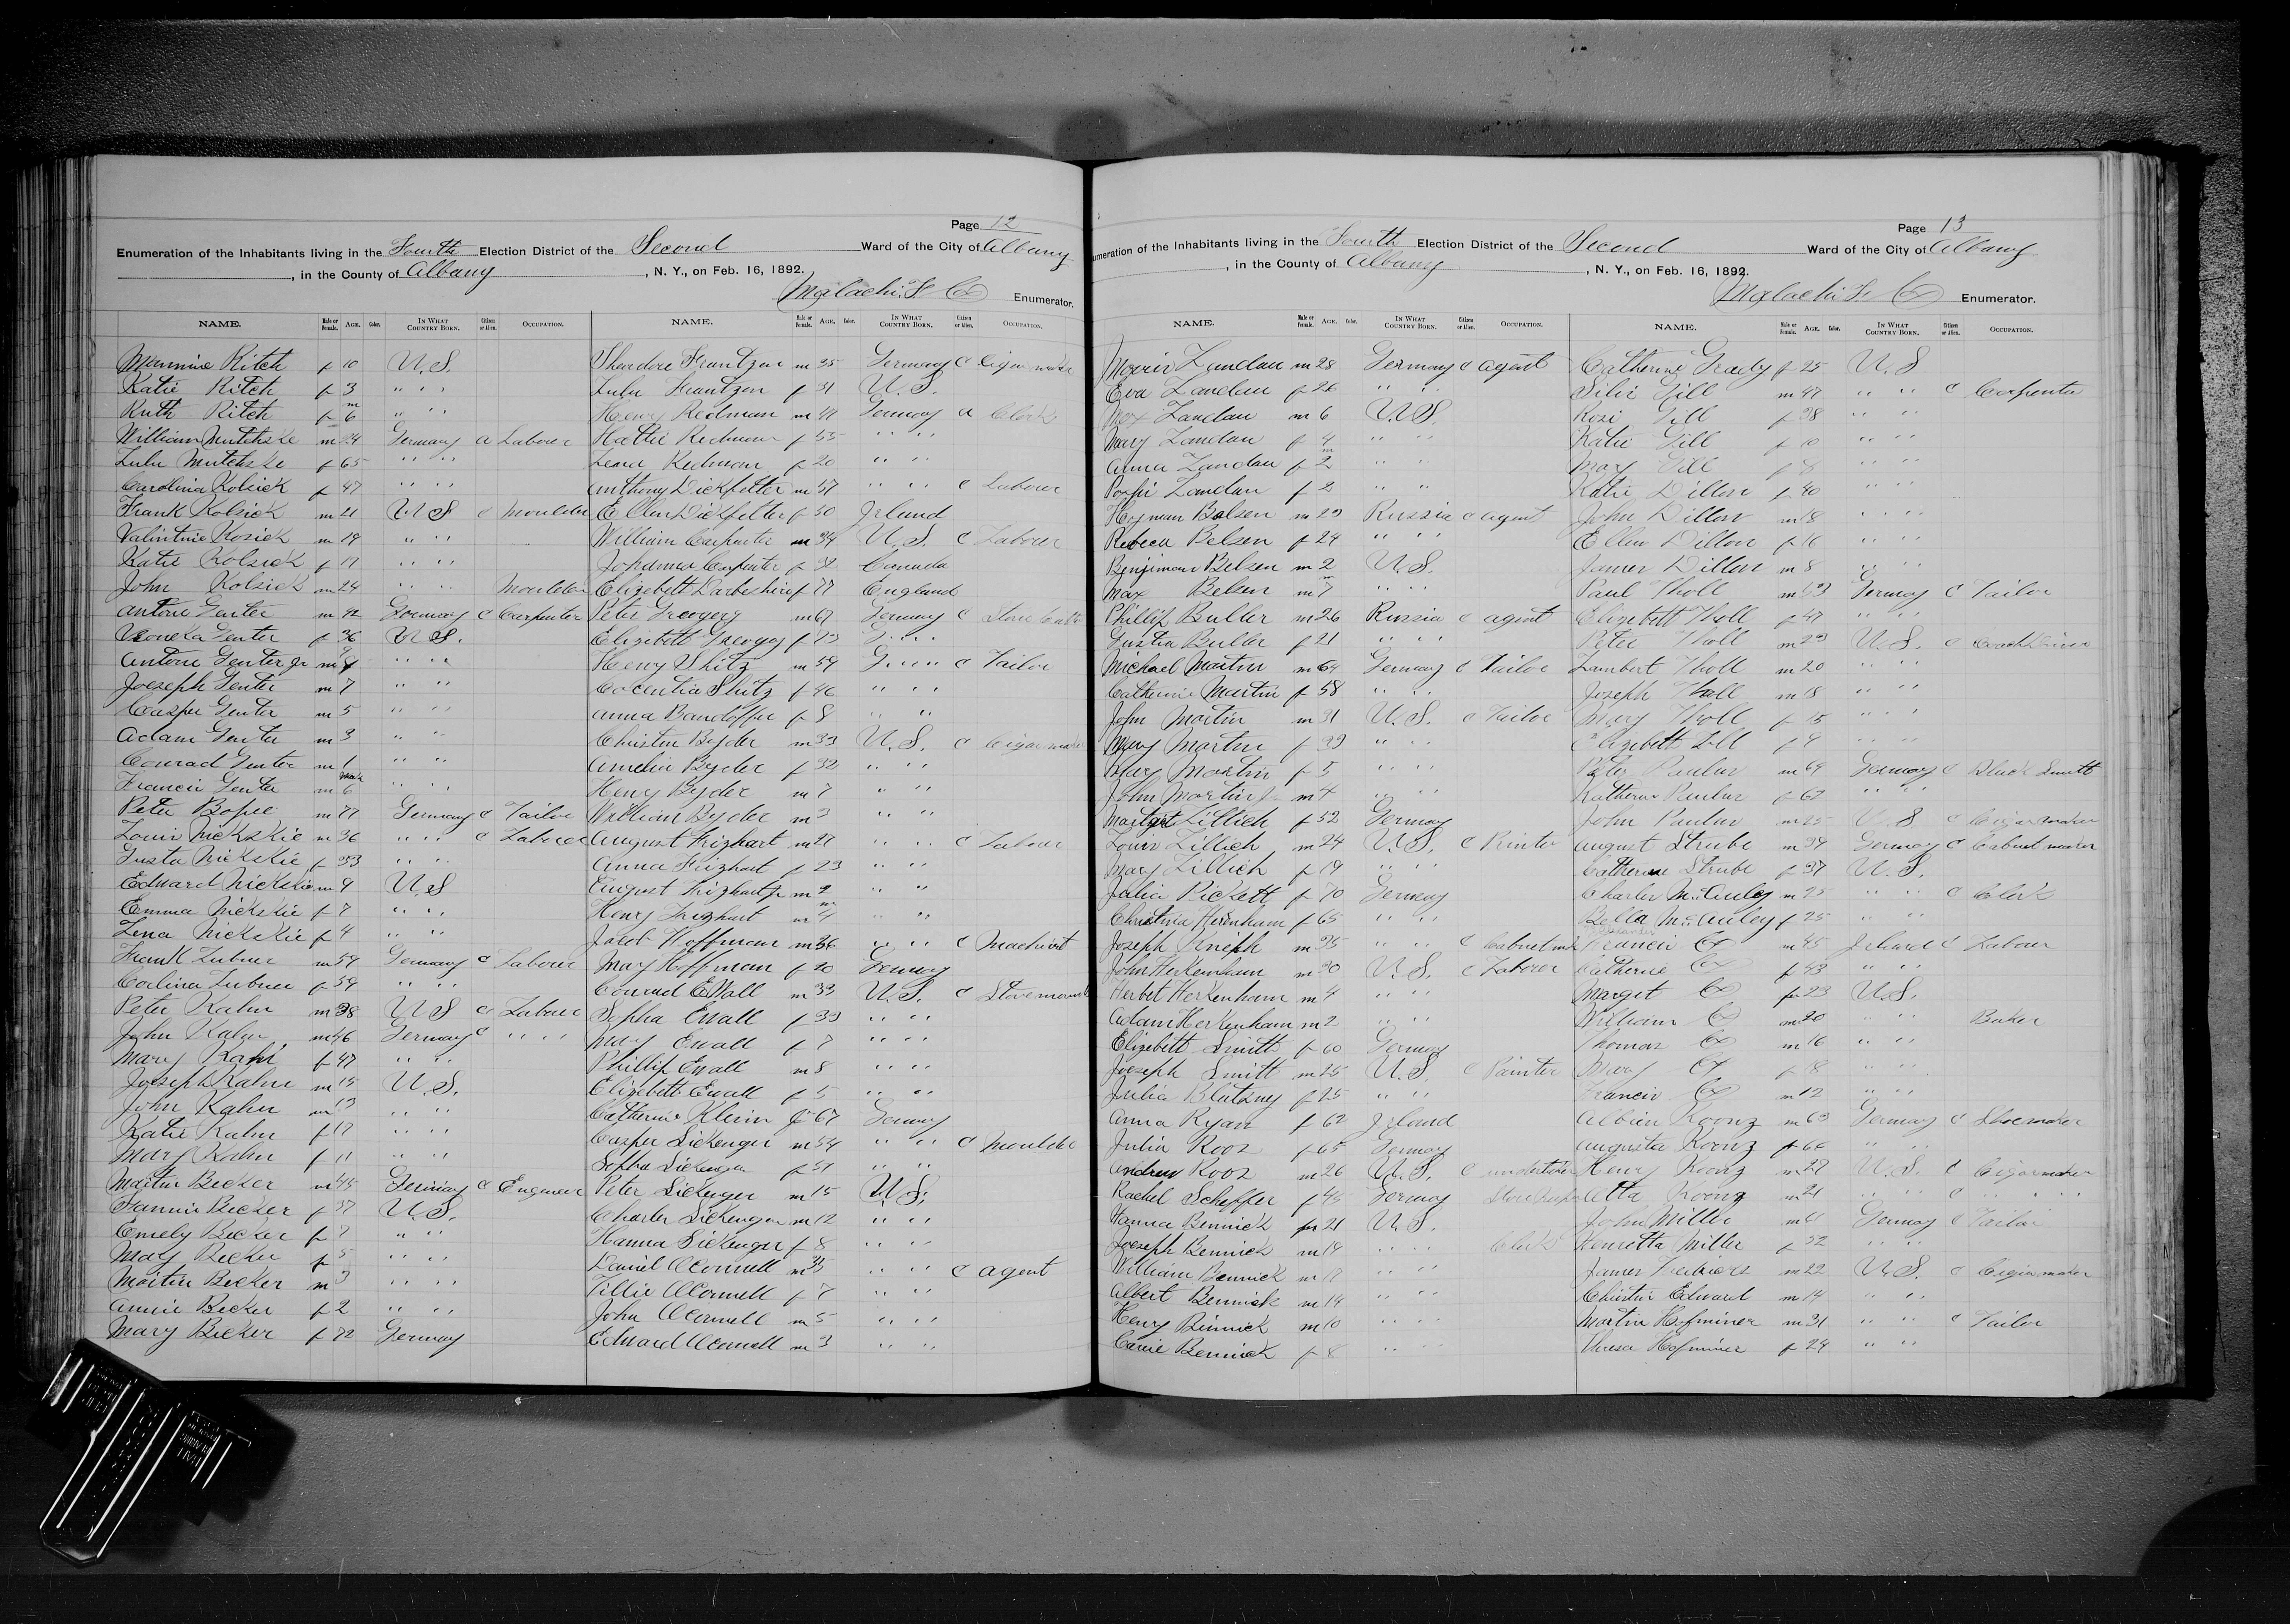 Page 12
Enumeration of the Inhabitants living in the Fourth Election District of the Second Ward of the City of Albany
, in the County of Albany , N. Y., on Feb. 16, 1892.
Malachi F Cox Enumerator.
NAME. Male or Female. AGE. Color. IN WHAT COUNTRY BORN. Citizen or Alien. OCCUPATION.
Mammie Ritch f 10 U.S.
Katie Ritch f 3 " " "
Ruth Ritch f 6 m " " "
William Mutchske m 24 Germany a Laborer
Lulu Mutchske f 65 " " "
Carolina Kolsick f 47 " " "
Frank Kolsick m 21 U S c Moulder
Valintine Kosick m 19 " " "
Katie Kolsick f 11 " " "
John Kolsick m 24 " " Moulder
Antone Genter m 42 Germany c Carpenter
Veoneta Genter f 36 U.S.
Antone Genter Jr m 9 " " "
Joeseph Genter m 7 " " "
Casper Genter m 5 " " "
Adam Genter m 3 " "
Conrad Genter m 1 " " "
Francis Genter m 6 week " " "
Peter Bopee m 77 Germany c Tailor
Louis Nickskie m 36 " " " c Laborer
Gusta Nickskie f 33 " " "
Edward Nickskie m 9 U.S
Emma Nickskie f 7 " " "
Lena Nickskie f 4 " " "
Frank Lubner m 59 Germany c Laborer
Carlina Lubner f 59 " " "
Peter Kahn m 38 U S c Laborer
John Kahn m 46 Germany c " " "
Mary Kahn f 47 " " "
Joeseph Kahn m 15 U.S.
John Kahn m 13 " " "
Katie Kahn f 17 " " "
Mary Kahn f 11 " " "
Martin Becker m 45 Germany c Engineer
Fannie Becker f 37 U.S.
Emely Becker f 7 " " "
Mary Becker f 5 " " "
Martin Becker m 3 " " "
Annie Becker f 2 " " "
Mary Becker f 72 Germany
NAME. Male or Female. AGE. Color. IN WHAT COUNTRY BORN. Citizen or Alien. OCCUPATION.
Theodore Frantzen m 35 Germany c Cigar maker
Lulu Frantzen f 31 U.S.
Henry Redman m 49 Germany a Clerk
Hattie Redman f 55 " " "
Lena Redman f 20 " " "
Anthony Dickfelter m 57 " " " c Laborer
Ellen Dickfelter f 50 Irland
William Carpenter m 34 U.S. c Laborer
Johanna Carpenter f 32 Canada
Elizebett Darbeshire f 77 England
Peter Greogery m 67 Germany c Stove
Elizebett Greogory f 73 " " "
Henry Shitz m 59 G " " " c Tailor
Shitz f 46 " " "
Anna f 8 " "
Christin Byder m 33 U.S. c Cigar maker
Amelia Byder f 32 " " "
Henry Byder m 7 " " "
William Byder m 3 " "
August m 27 " " " c Laborer
Anna f 23 " " "
August Jr m 2 " "
Henry m 4 m " "
Jacob Hoffman m 36 " " " c Machinist
Mary Hoffman f 20 Germany
Conrad Ewall m 33 U.S. c Stove
Sopha Ewall f 33 " " "
Mary Ewall f 7 " " "
Phillip Ewall m 8 " " "
Elizibett Ewall f 5 " " "
Catherine Klein f 67 Germany
Casper Sickenger m 54 " " " c Moulder
Sopha Sickenger f 51 " "
Peter Sickenger m 15 U.S.
Charles Sickenger m 12 " " "
Hanna Sickenger f 8 " " "
Daniel OConnell m 35 " " " c Agent
Tillie OConnell f 7 " " "
John OConnell m 5 " " "
Edward OConnell m 3 " " "
Page 13
Enumeration of the Inhabitants living in the Fourth Election District of the Second Ward of the City of Albany
, in the County of Albany , N. Y., on Feb. 16, 1892.
Malachi F Cox Enumerator.
NAME. Male or Female. AGE. Color. IN WHAT COUNTRY BORN. Citizen or Alien. OCCUPATION.
Morris Landau m 28 Germany c Agent
Eva Landau f 26 " "
Max Landau m 6 U.S.
Mary Landau f 4 " " "
Anna Landau f 2 m " "
Landau f 2 " "
Hayman Belsen m 29 Russia c Agent
Rebeca Belsen f 24 " " "
Benjiman Belsen m 2 U.S.
Max Belsen m 7 m
Phillip Buller m 26 Russia c Agent
Gustia Buller f 21 " " "
Michael Martin m 64 Germany c Tailor
Catherine Martin f 58 " " "
John Martin m 31 U.S. c Tailor
Mary Martin f 39 " " "
Mary Martin f 5 " " "
John Martin Jr m 4 " " "
Margret Zillich f 52 Germany
Louis Zillich m 24 U.S. c Printer
Mary Zillich f 19 " " "
Julia Pickett f 70 Germany
Christina Herenham f 65 " " "
Joseph Knieph m 35 " " " c Cabnet mk
John Herkenham m 30 U.S. c Laborer
Herbet Herkenham m 4 " " "
Adam Herkenham m 2 " " "
Elizebett Smitt f 60 Germany
Joeseph Smitt m 25 U.S. c Painter
Julia Blutzny f 25 " " "
Anna Ryan f 62 Irland
Julia Roos f 65 Germany
Andrew Roos m 26 U.S. c undertaker
Rachel Scheffer f 45 Germany Store Keeper
Hanna Bennick f 21 U.S.
Joeseph Bennick m 19 " " " Clerk
William Bennick m 17 " " "
Albert Bennick m 14 " " "
Henry Binnick m 10 " " "
Carrie Bennick f 8 " " "
NAME. Male or Female. AGE. Color. IN WHAT COUNTRY BORN. Citizen or Alien. OCCUPATION.
Catherine Grady f 25 U.S
Gill m 47 " " " c Carpenter
Rosi Gill f 38 " " "
Katie Gill f 10 " " "
Mary Gill f 8 " " "
Katie Dillon f 40 " " "
John Dillon m 18 " " "
Ellen Dillon f 16 " " "
James Dillon m 8 " " "
Paul Tholl m 53 Germay c Tailor
Elizebett Tholl f 47 " " "
Peter Tholl m 23 U.S. c Coach Driver
Lambert Tholl m 20 " " "
Joseph Tholl m 18 " " "
Mary Tholl f 15 " " "
Elizebett Toll f 9 " " "
Peter Paulus m 64 Germany c Black Smitt
Katherin Paulus f 62 " " "
John Paulus m 25 U.S c Cigar maker
August Strube m 39 Germay c Cabnet maker
Catherine Strube f 37 U.S.
Charles McAuley m 25 " " " c Clerk
Bella McAuley f 25 " " "
Francis Cox m 45 Irland c Laborer
Catherine Cox f 43 " " "
Marget Cox f 23 U.S.
William Cox m 20 " " Baker
Thomas Cox m 16 " " "
Mary Cox f 18 " " "
Francis Cox m 12 " " "
Albien Koonz m 63 Germany c Shoemaker
Augusta Koonz f 66 " " "
Henry Koonz m 27 U.S. c Cigar maker
Otta Koonz m 21 " " " c " " "
John Miller m 41 Germay c Tailor
Henretta Miller f 32 " " "
James m 22 U.S. c Cigar maker
Christin Edward m 14 " " "
Martin Hofminer m 31 " " " c Tailor
Theresa Hofminer f 24 " " "